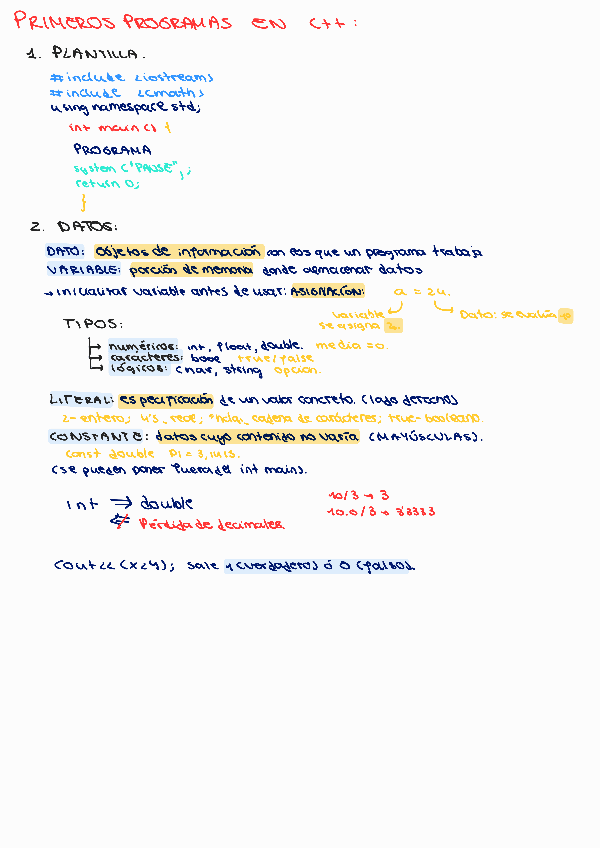 PRIMEROS PROGRAMAS EN C++:
1. PLANTILLA.
#include <iostream>
#include <cmath>
using namespace std;
int main () {
PROGRAMA
system ("PAUSE");
return 0;
}
2. DATOS:
DATO: Objetos de información con los que un programa trabaja
VARIABLE: porción de memoria donde almacenar datos
→ inicializar variable antes de usar: ASIGNACIÓN: a = 24.
variable se asigna
Dato: se evalúa
TIPOS:
→ numéricos: int, float, double. media = 0.
→ carácteres: bool true/false
→ lógicos: char, string opcion.
LITERAL: especificación de un valor concreto. (lado derecho)
2- entero; 4's, real; "hola", cadena de carácteres; true- booleano.
CONSTANTE: datos cuyo contenido no varía (MAYÚSCULAS).
const double PI = 3,1415.
(se pueden poner fuera del int main).
int ⇒ double
Pérdida de decimales.
10/3 → 3
10.0/3 → 3'3333
cout << (x<y); sale 1 (verdadero) ó 0 (falso).